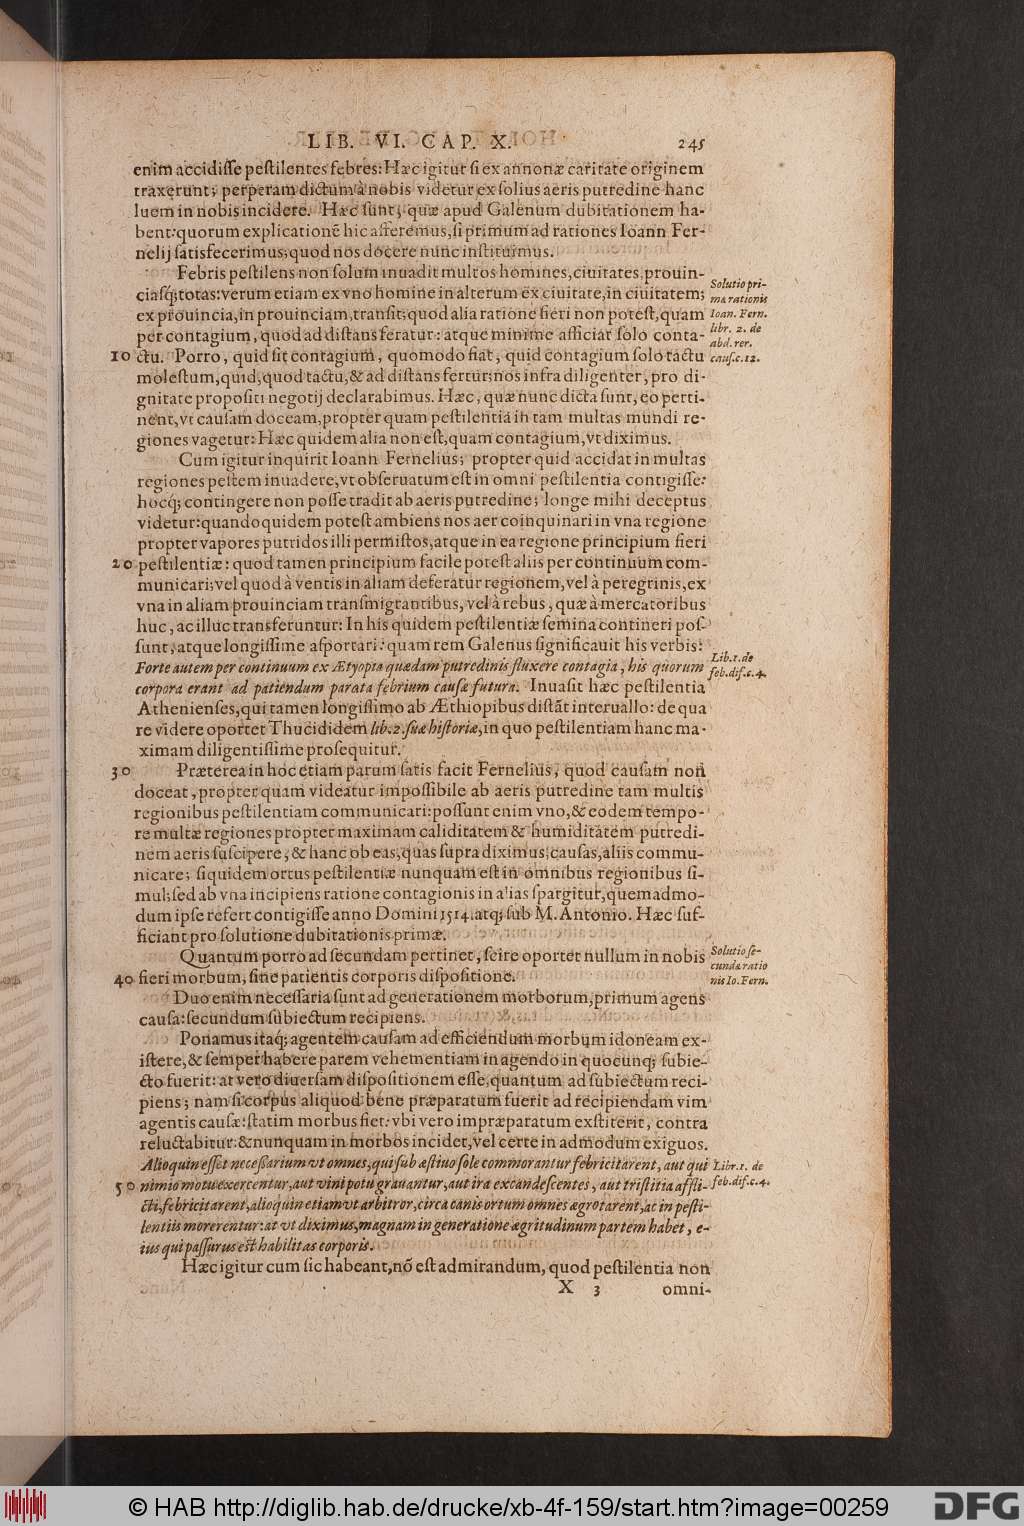 LIB. VI. CAP. X. 245
enim accidisse pestilentes febres: Hæc igitur si ex annonæ caritate originem
traxerunt; perperam dictum à nobis videtur ex solius aeris putredine hanc
luem in nobis incidere. Hæc sunt, quæ apud Galenum dubitationem ha-
bent: quorum explicationẽ hic afferemus, si primum ad rationes Ioann Fer-
nelij satisfecerimus; quod nos docere nunc instituimus.
Febris pestilens non solum inuadit multos homines, ciuitates, prouin-
ciasq́; totas: verum etiam ex vno homine in alterum ex ciuitate, in ciuitatem;
ex prouincia, in prouinciam, transit; quod alia ratione fieri non potest, quam
per contagium, quod ad distans feratur: atque minime afficiat solo conta-
10 ctu. Porro, quid sit contagium, quomodo fiat, quid contagium solo tactu
molestum, quid, quod tactu, & ad distans fertur; nos infra diligenter, pro di-
gnitate propositi negotij declarabimus. Hæc, quæ nunc dicta sunt, eo perti-
nent, vt causam doceam, propter quam pestilentia in tam multas mundi re-
giones vagetur: Hæc quidem alia non est, quam contagium, vt diximus.
Solutio pri-
mæ rationis
Ioan. Fern.
libr. 2. de
abd. rer.
caus. c. 12.
Cum igitur inquirit Ioann Fernelius; propter quid accidat in multas
regiones pestem inuadere, vt obseruatum est in omni pestilentia contigisse:
hocq́; contingere non posse tradit ab aeris putredine; longe mihi deceptus
videtur: quandoquidem potest ambiens nos aer coinquinari in vna regione
propter vapores putridos illi permistos, atque in ea regione principium fieri
20 pestilentiæ: quod tamen principium facile potest aliis per continuum com-
municari; vel quod à ventis in aliam deferatur regionem, vel à peregrinis, ex
vna in aliam prouinciam transmigrantibus, vel à rebus, quæ à mercatoribus
huc, ac illuc transferuntur: In his quidem pestilentiæ semina contineri pos-
sunt, atque longissime asportari: quam rem Galenus significauit his verbis:
Forte autem per continuum ex Ætyopia quædam putredinis fluxere contagia, his quorum
corpora erant ad patiendum parata febrium causæ futura. Inuasit hæc pestilentia
Athenienses, qui tamen longissimo ab Æthiopibus distãt interuallo: de qua
re videre oportet Thucididem lib. 2. suæ historiæ, in quo pestilentiam hanc ma-
ximam diligentissime prosequitur.
Lib. 1. de
feb. dif. c. 4.
30 Præterea in hoc etiam parum satis facit Fernelius, quod causam non
doceat, propter quam videatur impossibile ab aeris putredine tam multis
regionibus pestilentiam communicari: possunt enim vno, & eodem tempo-
re multæ regiones propter maximam caliditatem & humiditatem putredi-
nem aeris suscipere, & hanc ob eas, quas supra diximus, causas, aliis commu-
nicare; siquidem ortus pestilentiæ nunquam est in omnibus regionibus si-
mul; sed ab vna incipiens ratione contagionis in alias spargitur, quemadmo-
dum ipse refert contigisse anno Domini 1514. atq; sub M. Antonio. Hæc suf-
ficiant pro solutione dubitationis primæ.
Quantum porro ad secundam pertinet, scire oportet nullum in nobis
40 fieri morbum, sine patientis corporis dispositione.
Solutio se-
cundæ ratio
nis Io. Fern.
Duo enim necessaria sunt ad generationem morborum, primum agens
causa: secundum subiectum recipiens.
Ponamus itaq́; agentem causam ad efficiendum morbum idoneam ex-
istere, & semper habere parem vehementiam in agendo in quocunq; subie-
cto fuerit: at vero diuersam dispositionem esse, quantum ad subiectum reci-
piens; nam si corpus aliquod bene præparatum fuerit ad recipiendam vim
agentis causæ: statim morbus fiet: vbi vero impræparatum exstiterit, contra
reluctabitur: & nunquam in morbos incidet, vel certe in admodum exiguos.
Alioquin esset necessarium vt omnes, qui sub æstiuo sole commorantur febricitarent, aut qui
50 nimio motu exercentur, aut vini potu grauantur, aut ira excandescentes, aut tristitia affli-
cti, febricitarent, alioquin etiam vt arbitror, circa canis ortum omnes ægrotarent, ac in pesti-
lentiis morerentur: at vt diximus, magnam in generatione ægritudinum partem habet, e-
ius qui passurus est habilitas corporis.
Libr. 1. de
feb. dif. c. 4.
Hæc igitur cum sic habeant, nõ est admirandum, quod pestilentia non
X 3 omni-
© HAB http://diglib.hab.de/drucke/xb-4f-159/start.htm?image=00259
DFG